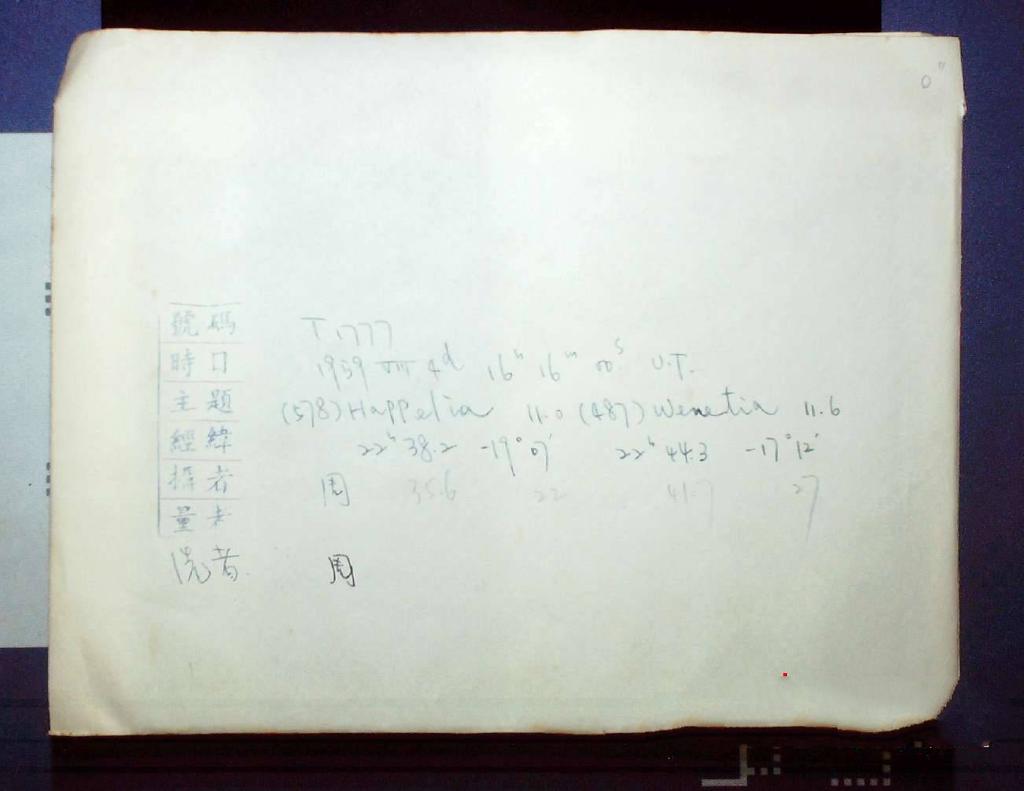 0"
號碼 T 1777
時日 1959 VIII 4d 16h 16m 00s U.T.
主題 (578) Happelia 11.0 (487) Wenetia 11.6
經緯 22h 38.2 -19° 07' 22h 44.3 -17° 12'
攝者 周 35.6 22 41.7 27
量者
洗者 周